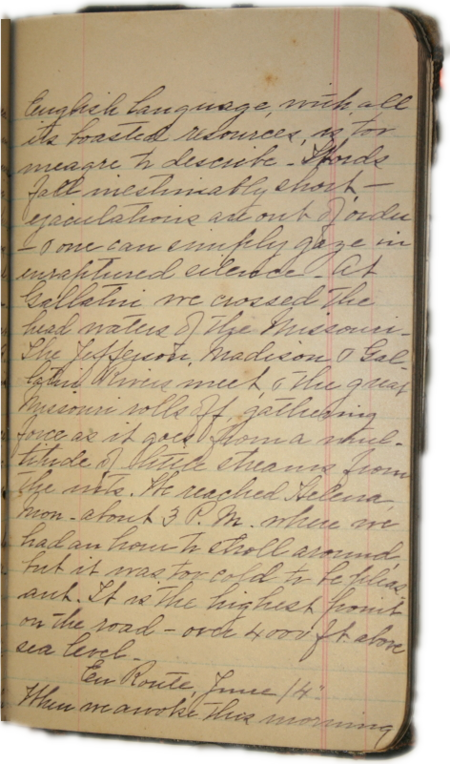 English language, with all
its boasted resources, is too
meagre to describe - Words
fall inestimably short -
ejaculations are out of order
- & one can simply gaze in
enraptured silence - At
Gallatin we crossed the
head waters of the Missouri -
The Jefferson, Madison & Gal-
latin Rivers meet, & the great
Missouri rolls off, gathering
force as it goes from a mul-
titude of little streams from
the mts. We reached Helena
Mon - about 3 P.M. where we
had an hour to stroll around,
but it was too cold to be pleas
ant. It is the highest point
on the road - over 4000 ft above
sea level -
En Route, June 14"
When we awoke this morning